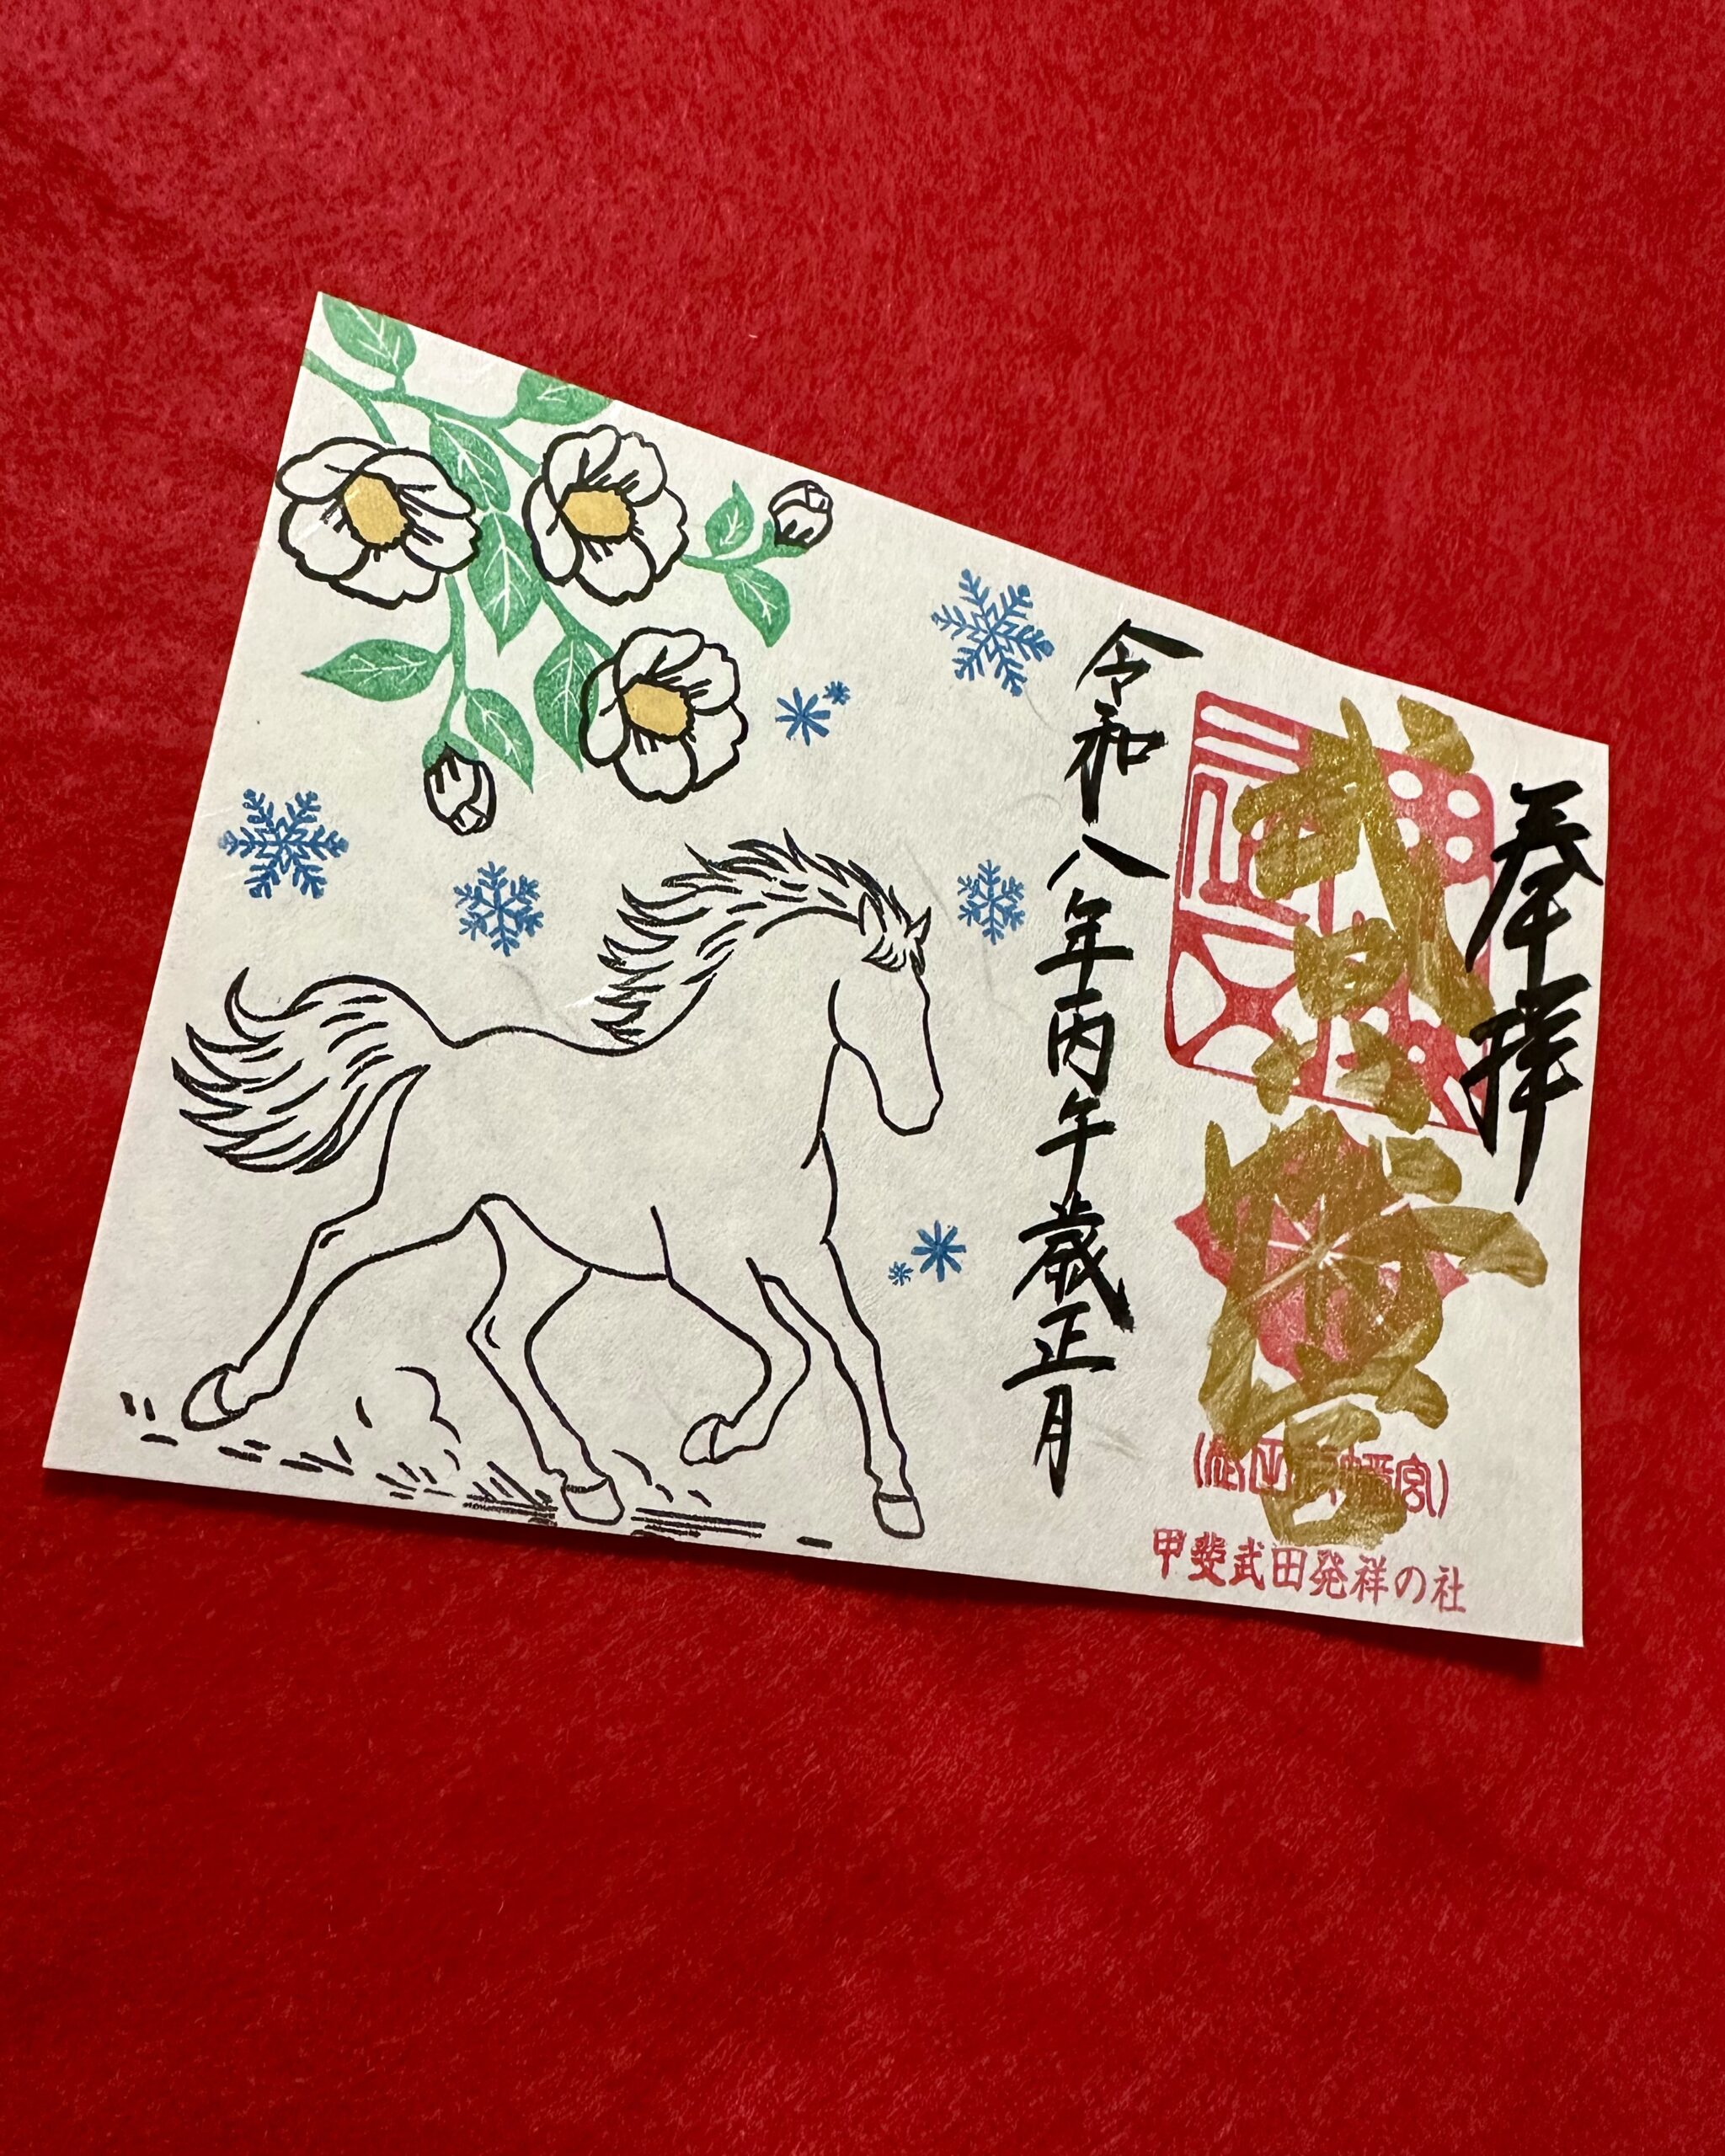 奉拝
武田八幡宮
甲斐武田発祥の社
令和八年丙午歳正月